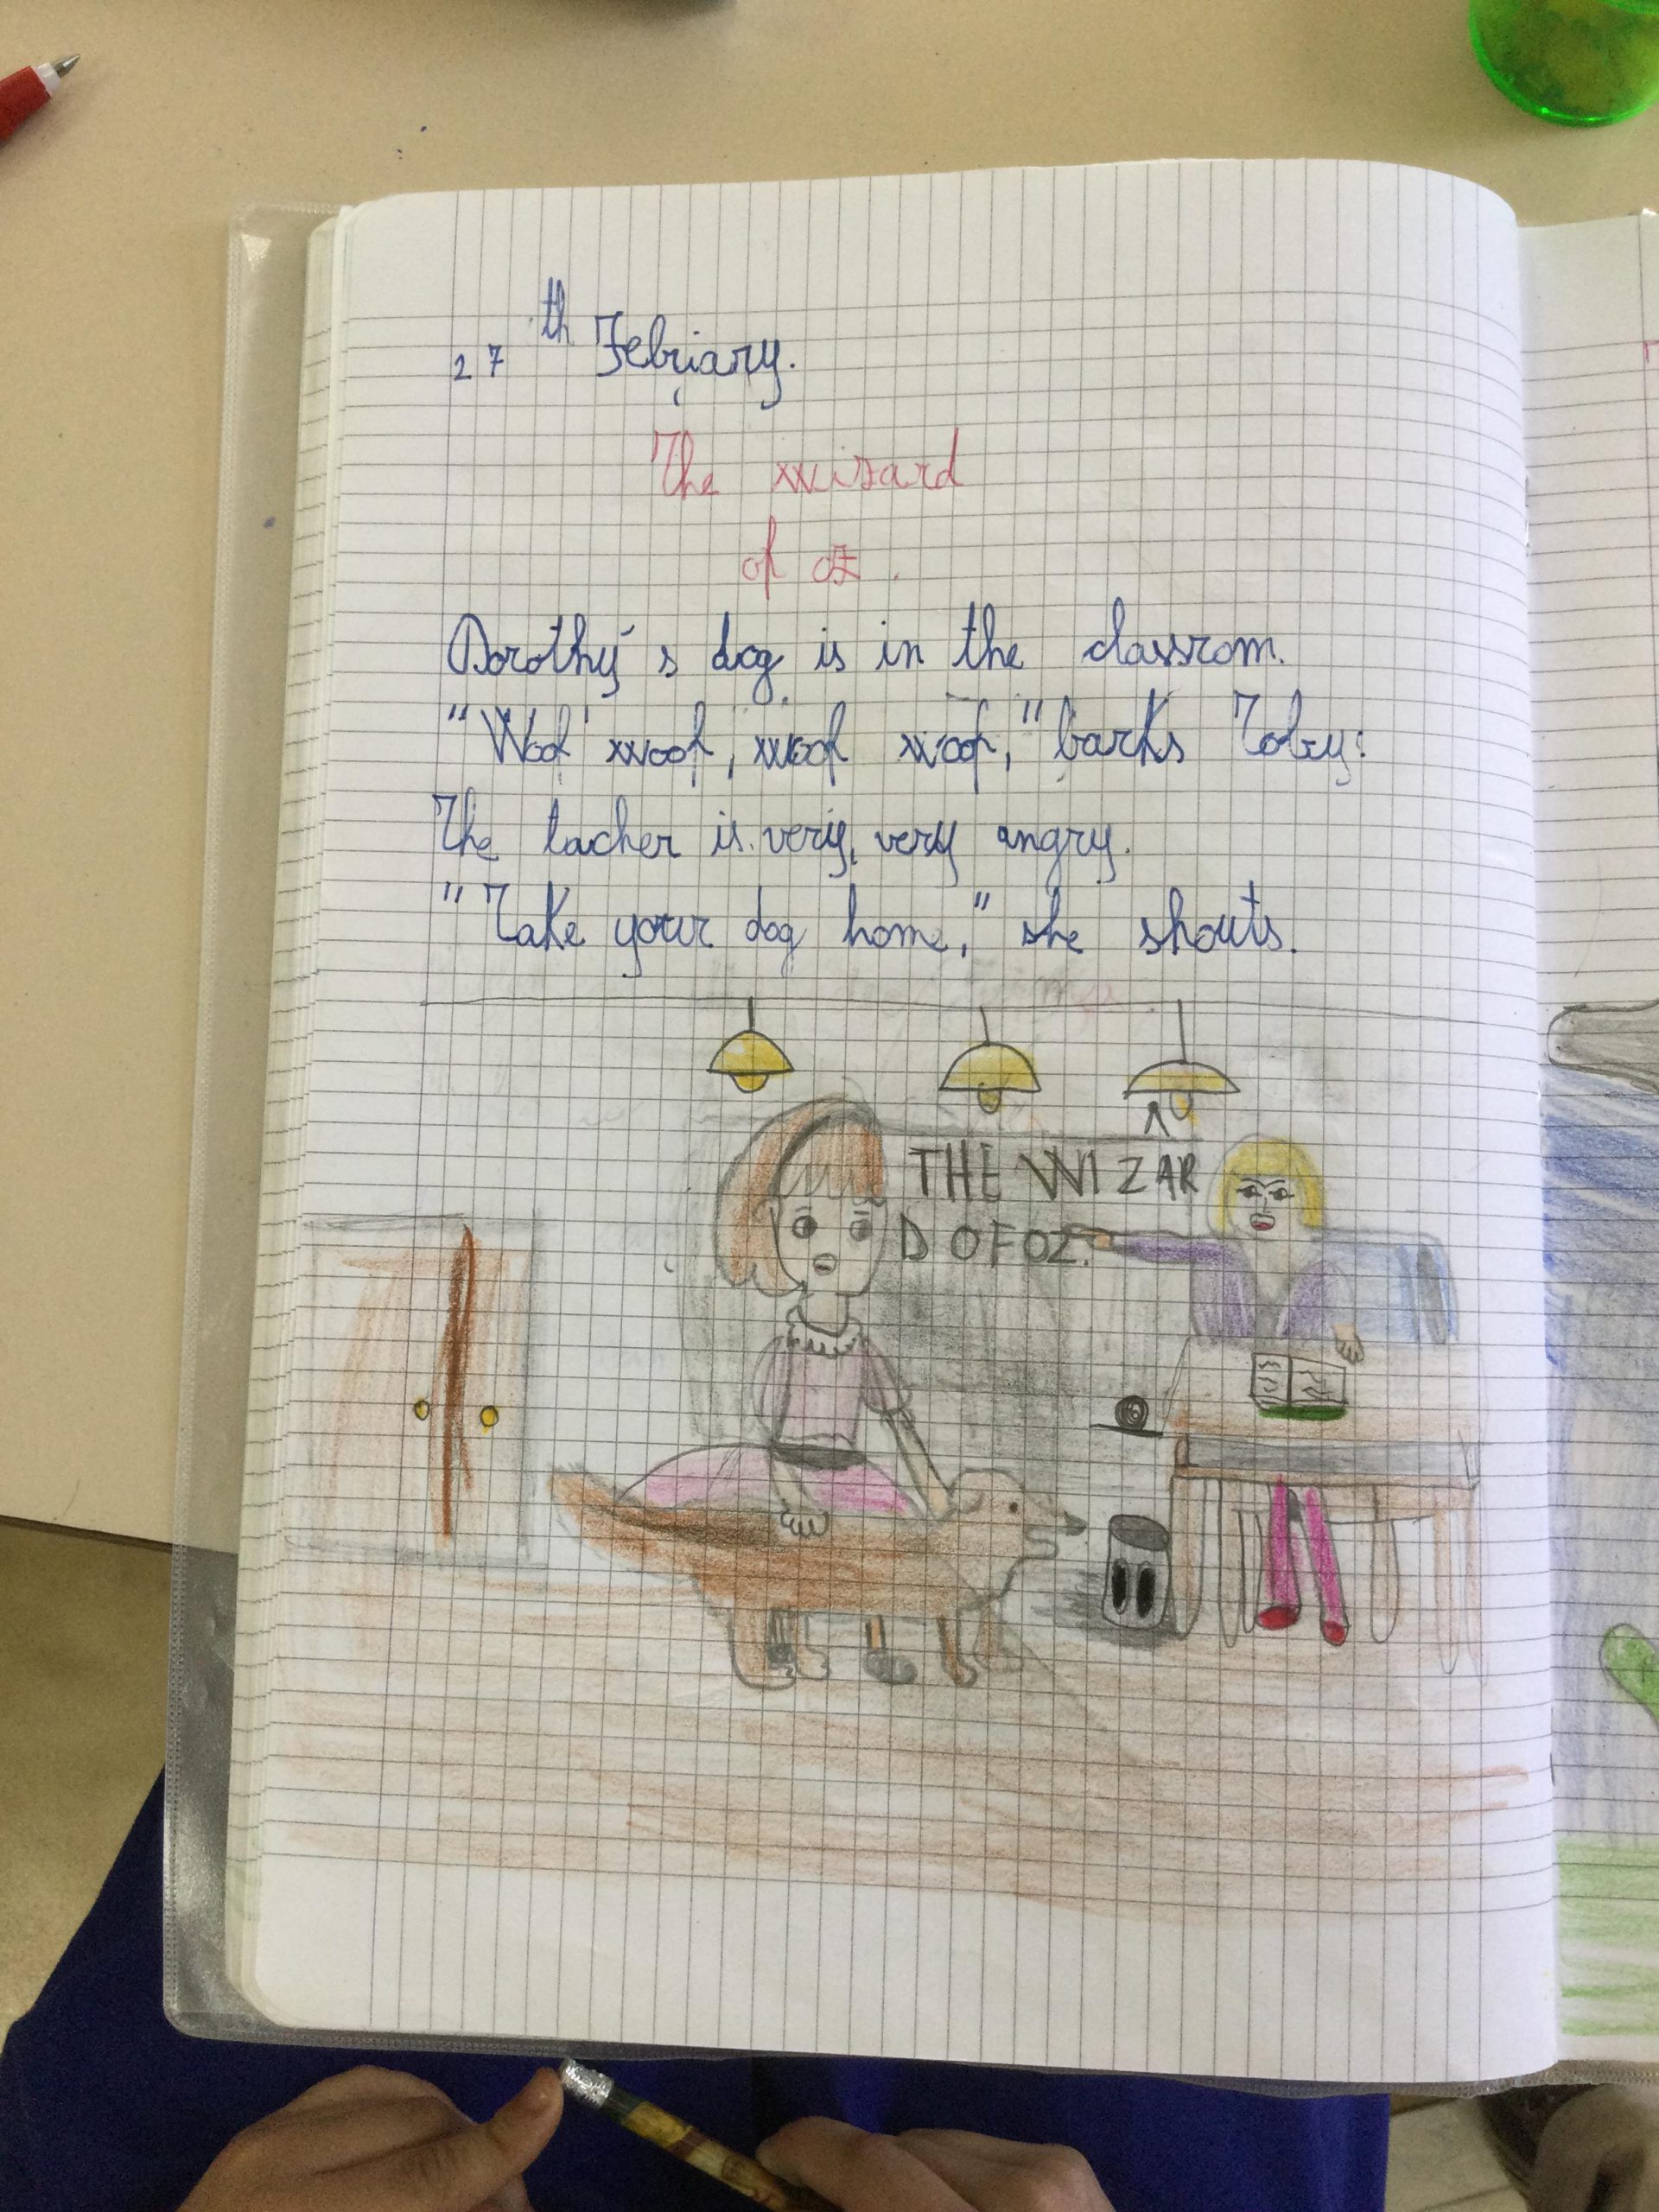 27th Febriary.
The wizard
of oz.
Dorothy's dog is in the classrom.
"Woof woof, woof woof," barks Toby:
The tacher is very, very angry.
"Take your dog home," she shouts.
THE WIZAR
D OF OZ.